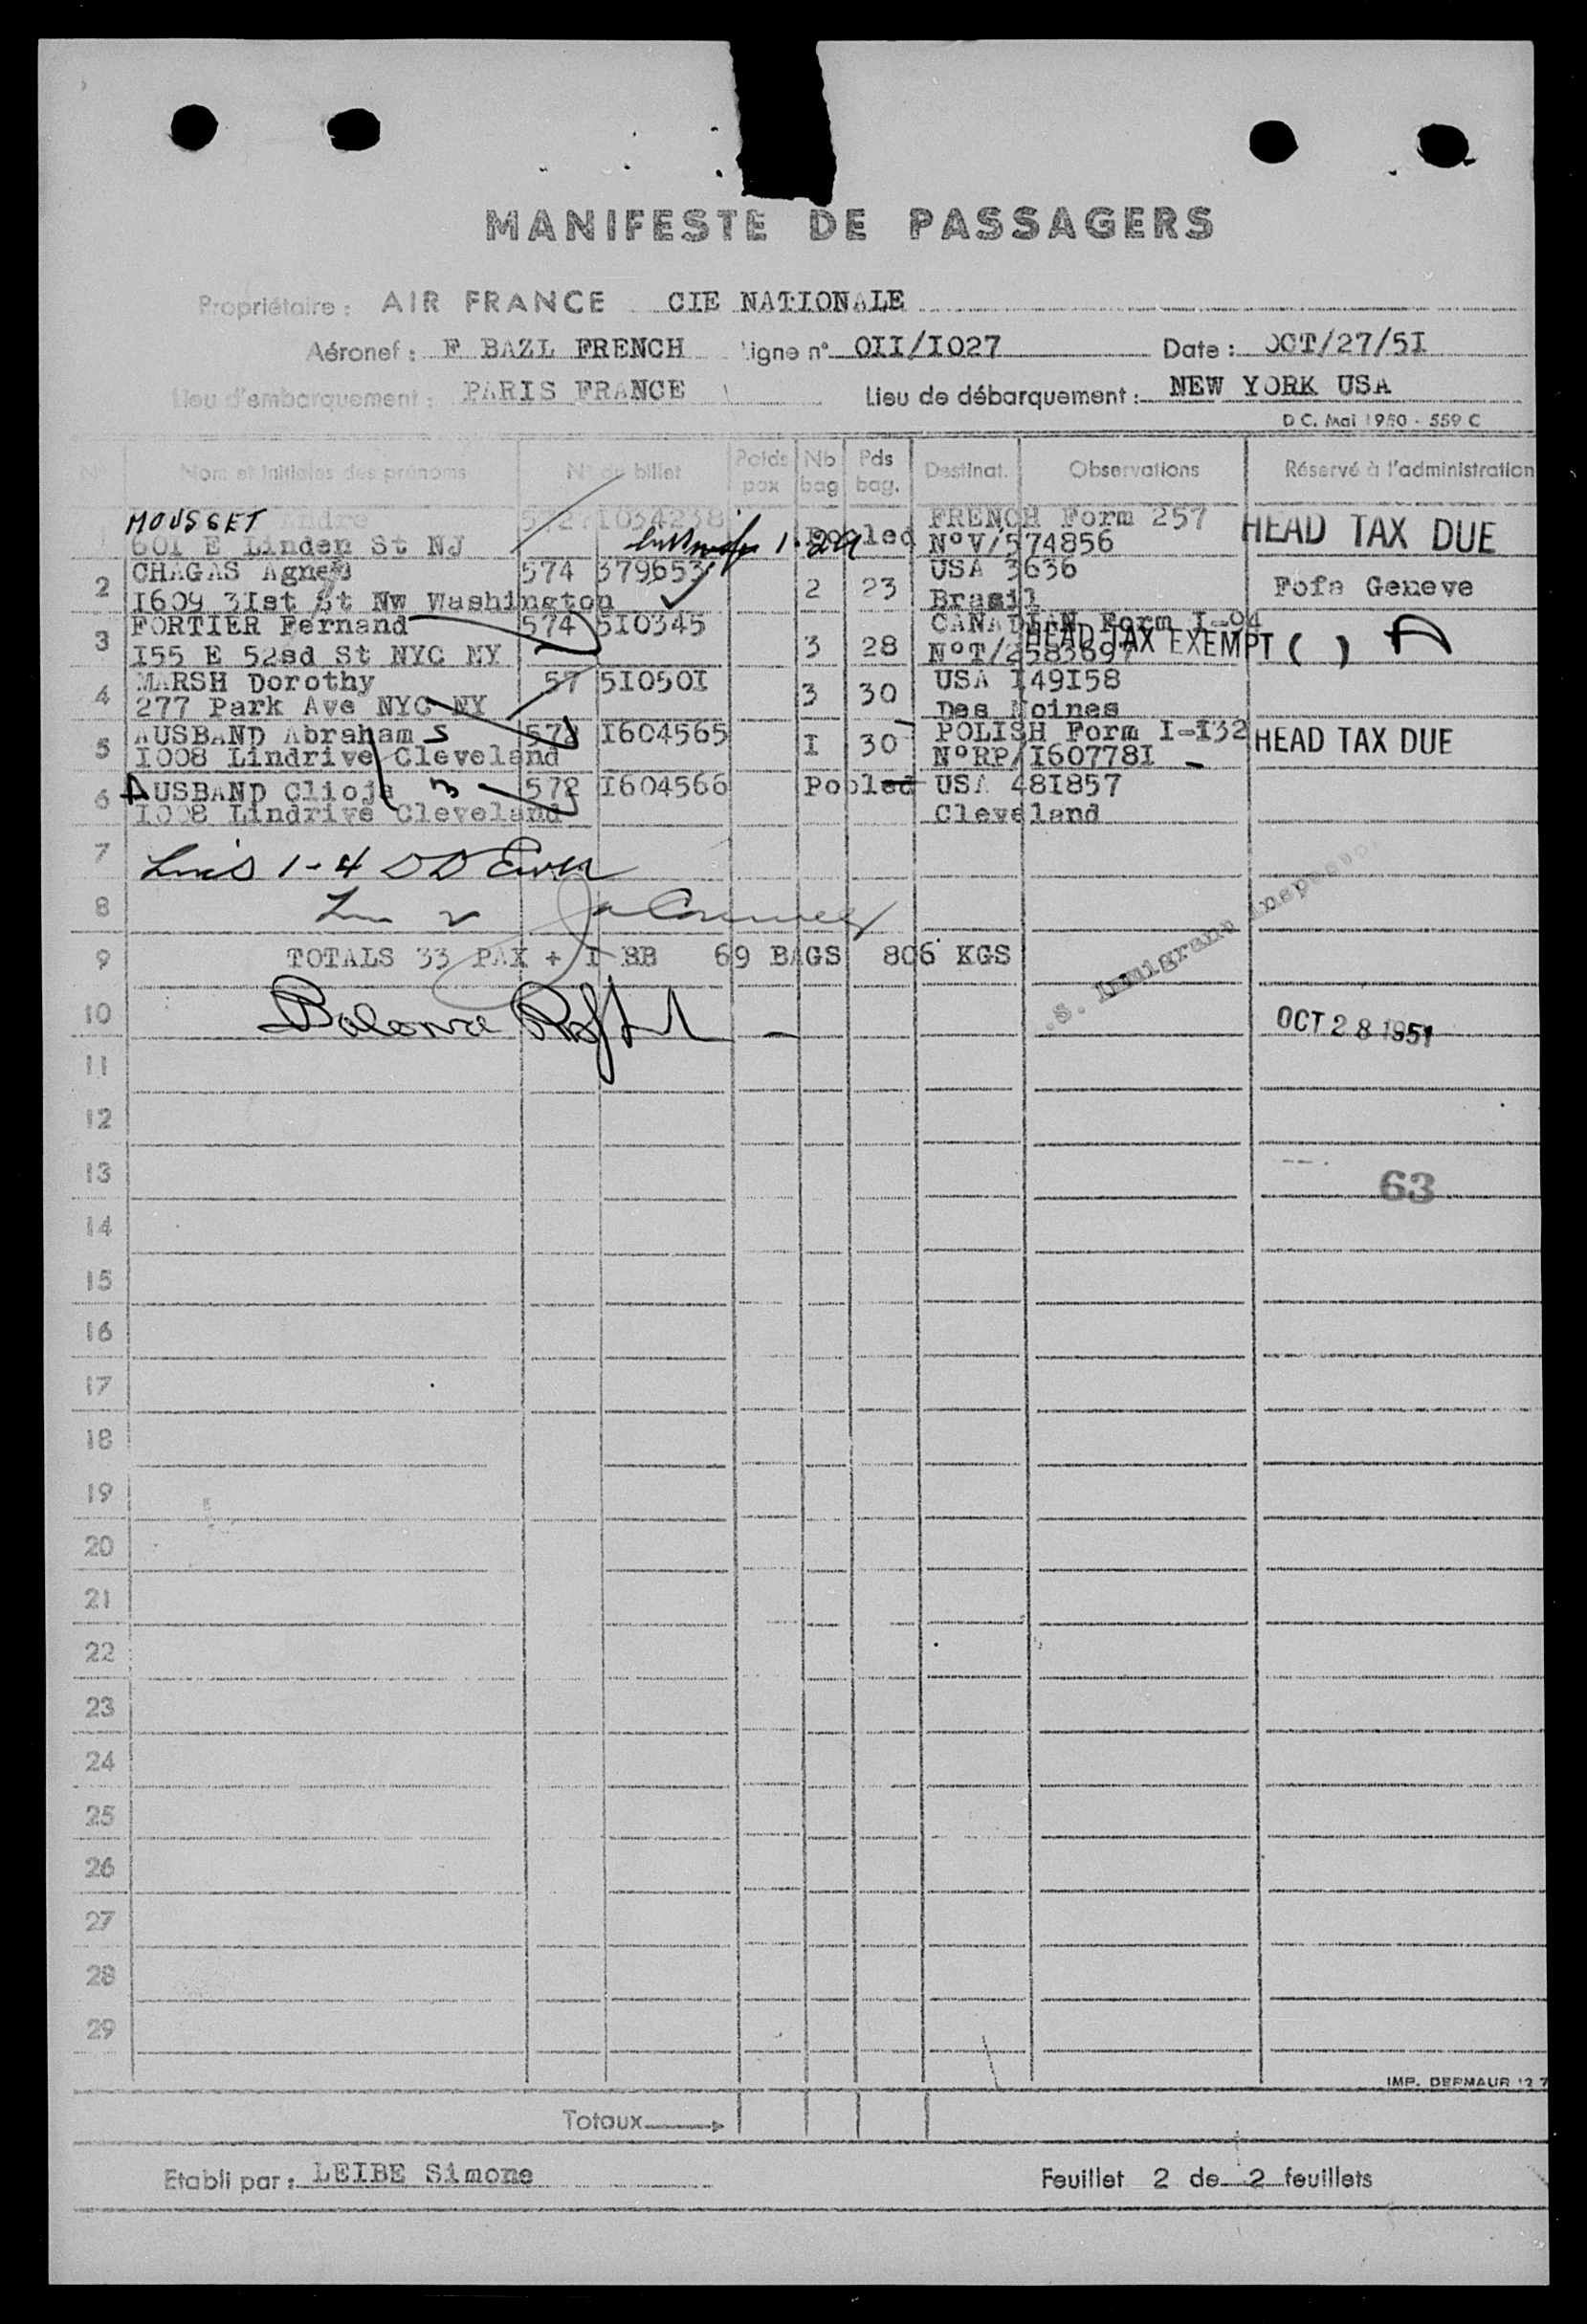 MANIFESTE DE PASSAGERS
Propriétaire : AIR FRANCE CIE NATIONALE
Aéronef : F BAZL FRENCH Ligne n° OII/IO27 Date : OCT/27/5I
Lieu d'embarquement : PARIS FRANCE Lieu de débarquement : NEW YORK USA
D C. Mai 1950 - 559 C
Nom et initiales des prénoms N° du billet Poids pax Nb bag Pds bag. Destinat. Observations Réservé à l'administration
MOUSSET Andre 572 I034238 FRENCH Form 257 HEAD TAX DUE
601 E Linden St NJ Pooled N°V/574856
2 CHAGAS Agnes 574 379653 2 23 USA 3636 Fofa Geneve
I609 3Ist St Nw Washington Brasil
3 FORTIER Fernand 574 5I0345 3 28 CANADIAN Form I-94
I55 E 52sd St NYC NY N°T/2583697 HEAD TAX EXEMPT ( )
4 MARSH Dorothy 57 5I050I 3 30 USA I49I58
277 Park Ave NYC NY Des Moines
5 AUSBAND Abraham S 572 I604565 I 30 POLISH Form I-I32 HEAD TAX DUE
I008 Lindrive Cleveland N°RP/I60778I
6 AUSBAND Clioja 572 I604566 Pooled USA 48I857
I008 Lindrive Cleveland Cleveland
7
8
9 TOTALS 33 PAX + I BB 69 BAGS 806 KGS
.S. Immigrant Inspector
10 OCT 28 1951
11
12
13 63
14
15
16
17
18
19
20
21
22
23
24
25
26
27
28
29
IMP. DEPMAUR
Totaux
Etabli par : LEIBE Simone Feuillet 2 de 2 feuillets